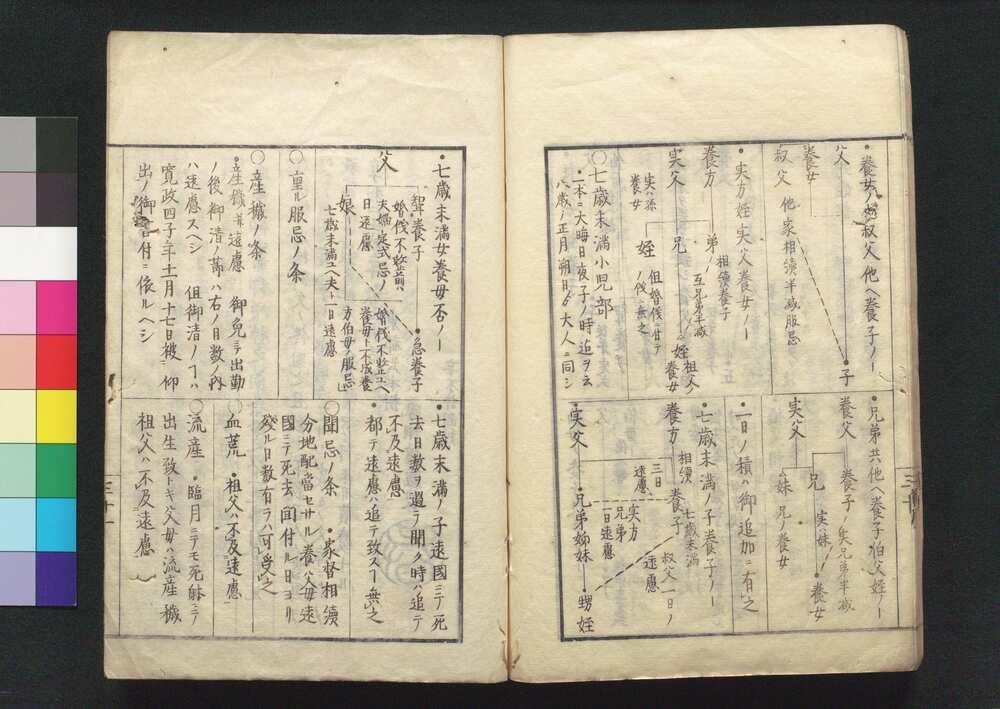 ・養女ノ
叔父他ヘ養子ノヿ
父
養女
叔父
他家相續半减服忌
子
・実方姪実父養女ノヿ
養方
実父
弟
相続養子
互兄弟半减
兄
姪
祖父ノ養女
実ハ孫
養女
姪
但婚儀
〇七歳未満小児部
・一本ニ大晦日夜子ノ時迠ヲ云
八歳ノ正月朔日ゟ大人ニ同シ
・兄弟共他ヘ養子伯父姪ノヿ
養父
養子
実兄弟半减
実父
兄
実ハ妹
養女
妹
兄ノ養女
・一日ノ積ハ御追加ニ有之
・七歳未満ノ子養子ノヿ
養方
相続
養子
七歳未満
三日
遠慮
叔父一日ノ
遠慮
実方
兄弟
一日遠慮
実父
兄弟姊妹
甥姪
・七歳未満女養母否ノヿ
父
聟養子
急養子
婚儀不整前ハ
夫婦定式忌ノ
日遠慮
娘
七歳未満ユヘ夫ト一日遠慮
婚儀不整ユヘ
養母ト不成養
方伯母ノ服忌
〇重ル服忌ノ条
〇産穢ノ条
・産穢并遠慮 御免ニテ出勤
ノ後御清ノ節ハ右ノ日数ノ内
ハ遠慮スヘシ 但御清ノヿハ
寛政四子年十一月十七日被 仰
出ノ御書付ニ依ルヘシ
・七歳未満ノ子遠國ニテ死
去日数ヲ過テ聞ク時ハ追テ
不及遠慮
・都テ遠慮ハ追テ致スヿ無之
〇聞忌ノ条 ・家督相續
分地配當セサル養父母遠
國ニテ死去聞付ル日ヨリ
残ル日数有ラハ可受之
〇血荒 ・祖父ハ不及遠慮
〇流産 ・臨月ニテモ死躰ニテ
出生致トキ父母ハ流産穢
祖父ハ不及遠慮